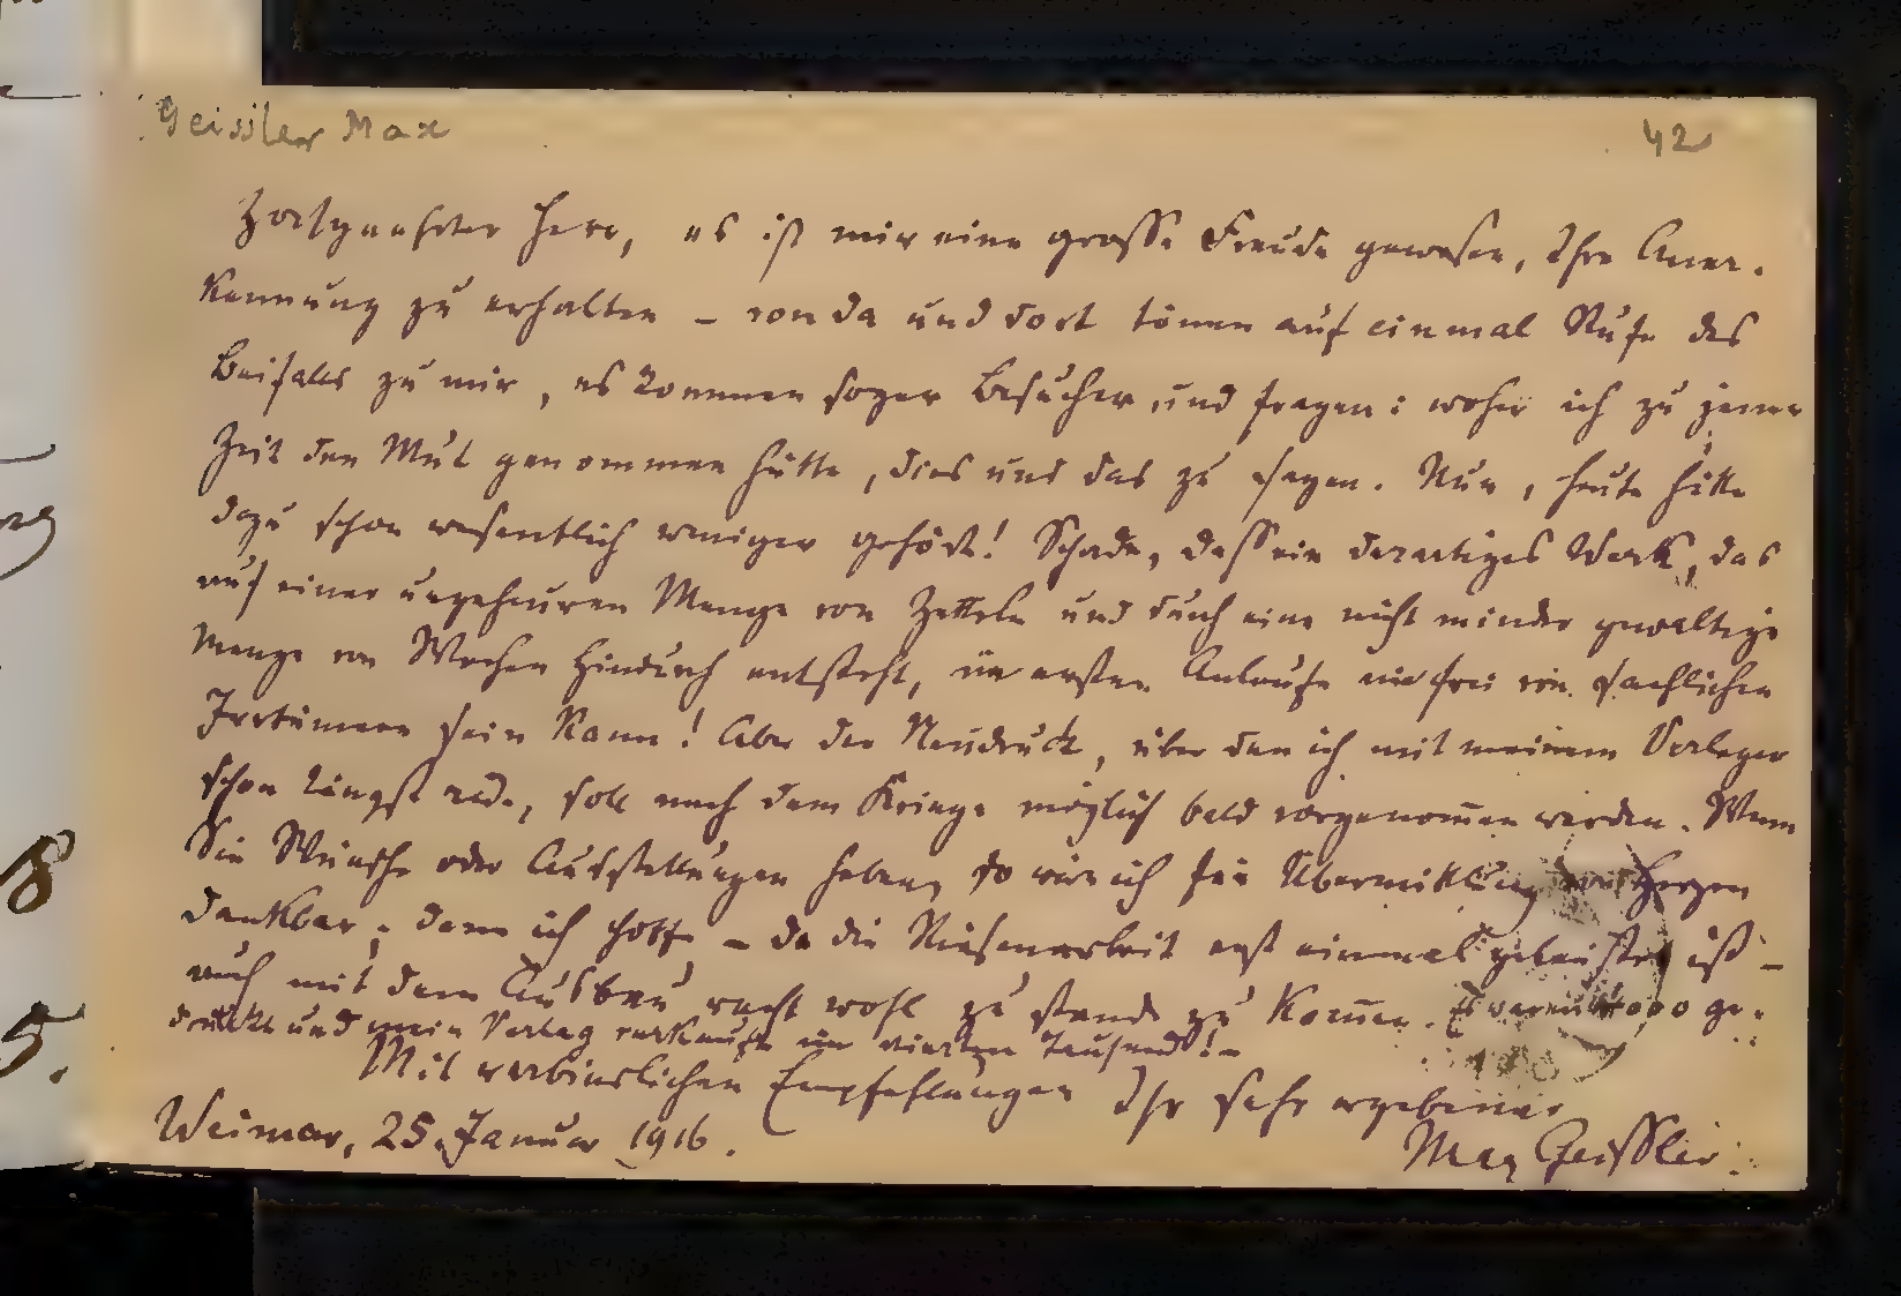 Geissler Max
42
Hochgeehrter Herr, es ist mir eine grosse Freude gewesen, Ihre Aner-
kennung zu erhalten – von da und dort tönen auf einmal Rufe des
Beifalls zu mir, es kommen sogar Besucher und fragen: woher ich zu jener
Zeit den Mut genommen hätte, dies und das zu sagen. Nun, heute hätte
dazu schon wesentlich weniger gehört! Schade, dass ein derartiges Werk, das
auf einer ungeheuren Menge von Zetteln und durch eine nicht minder gewaltige
Menge von Wochen hindurch entsteht, im ersten Anlaufe nie frei von sachlichen
Irrtümern sein kann! Aber der Neudruck, über den ich mit meinem Verleger
schon längst rede, soll nach dem Kriege möglich bald vorgenom̄en werden. Wenn
Sie Wünsche oder Ausstellungen haben, so wäre ich für Übermittlung von Herzen
dankbar; denn ich hoffe – da die Riesenarbeit erst einmal geleistet ist –
auch mit dem Ausbau recht wohl zu stande zu kom̄en. Es waren 4000 ge-
druckt und mein Verlag verkaufte im vierten Tausend! –
Mit verbindlichen Empfehlungen Ihr sehr ergebener
Weimar, 25. Januar 1916.
Max Geissler.